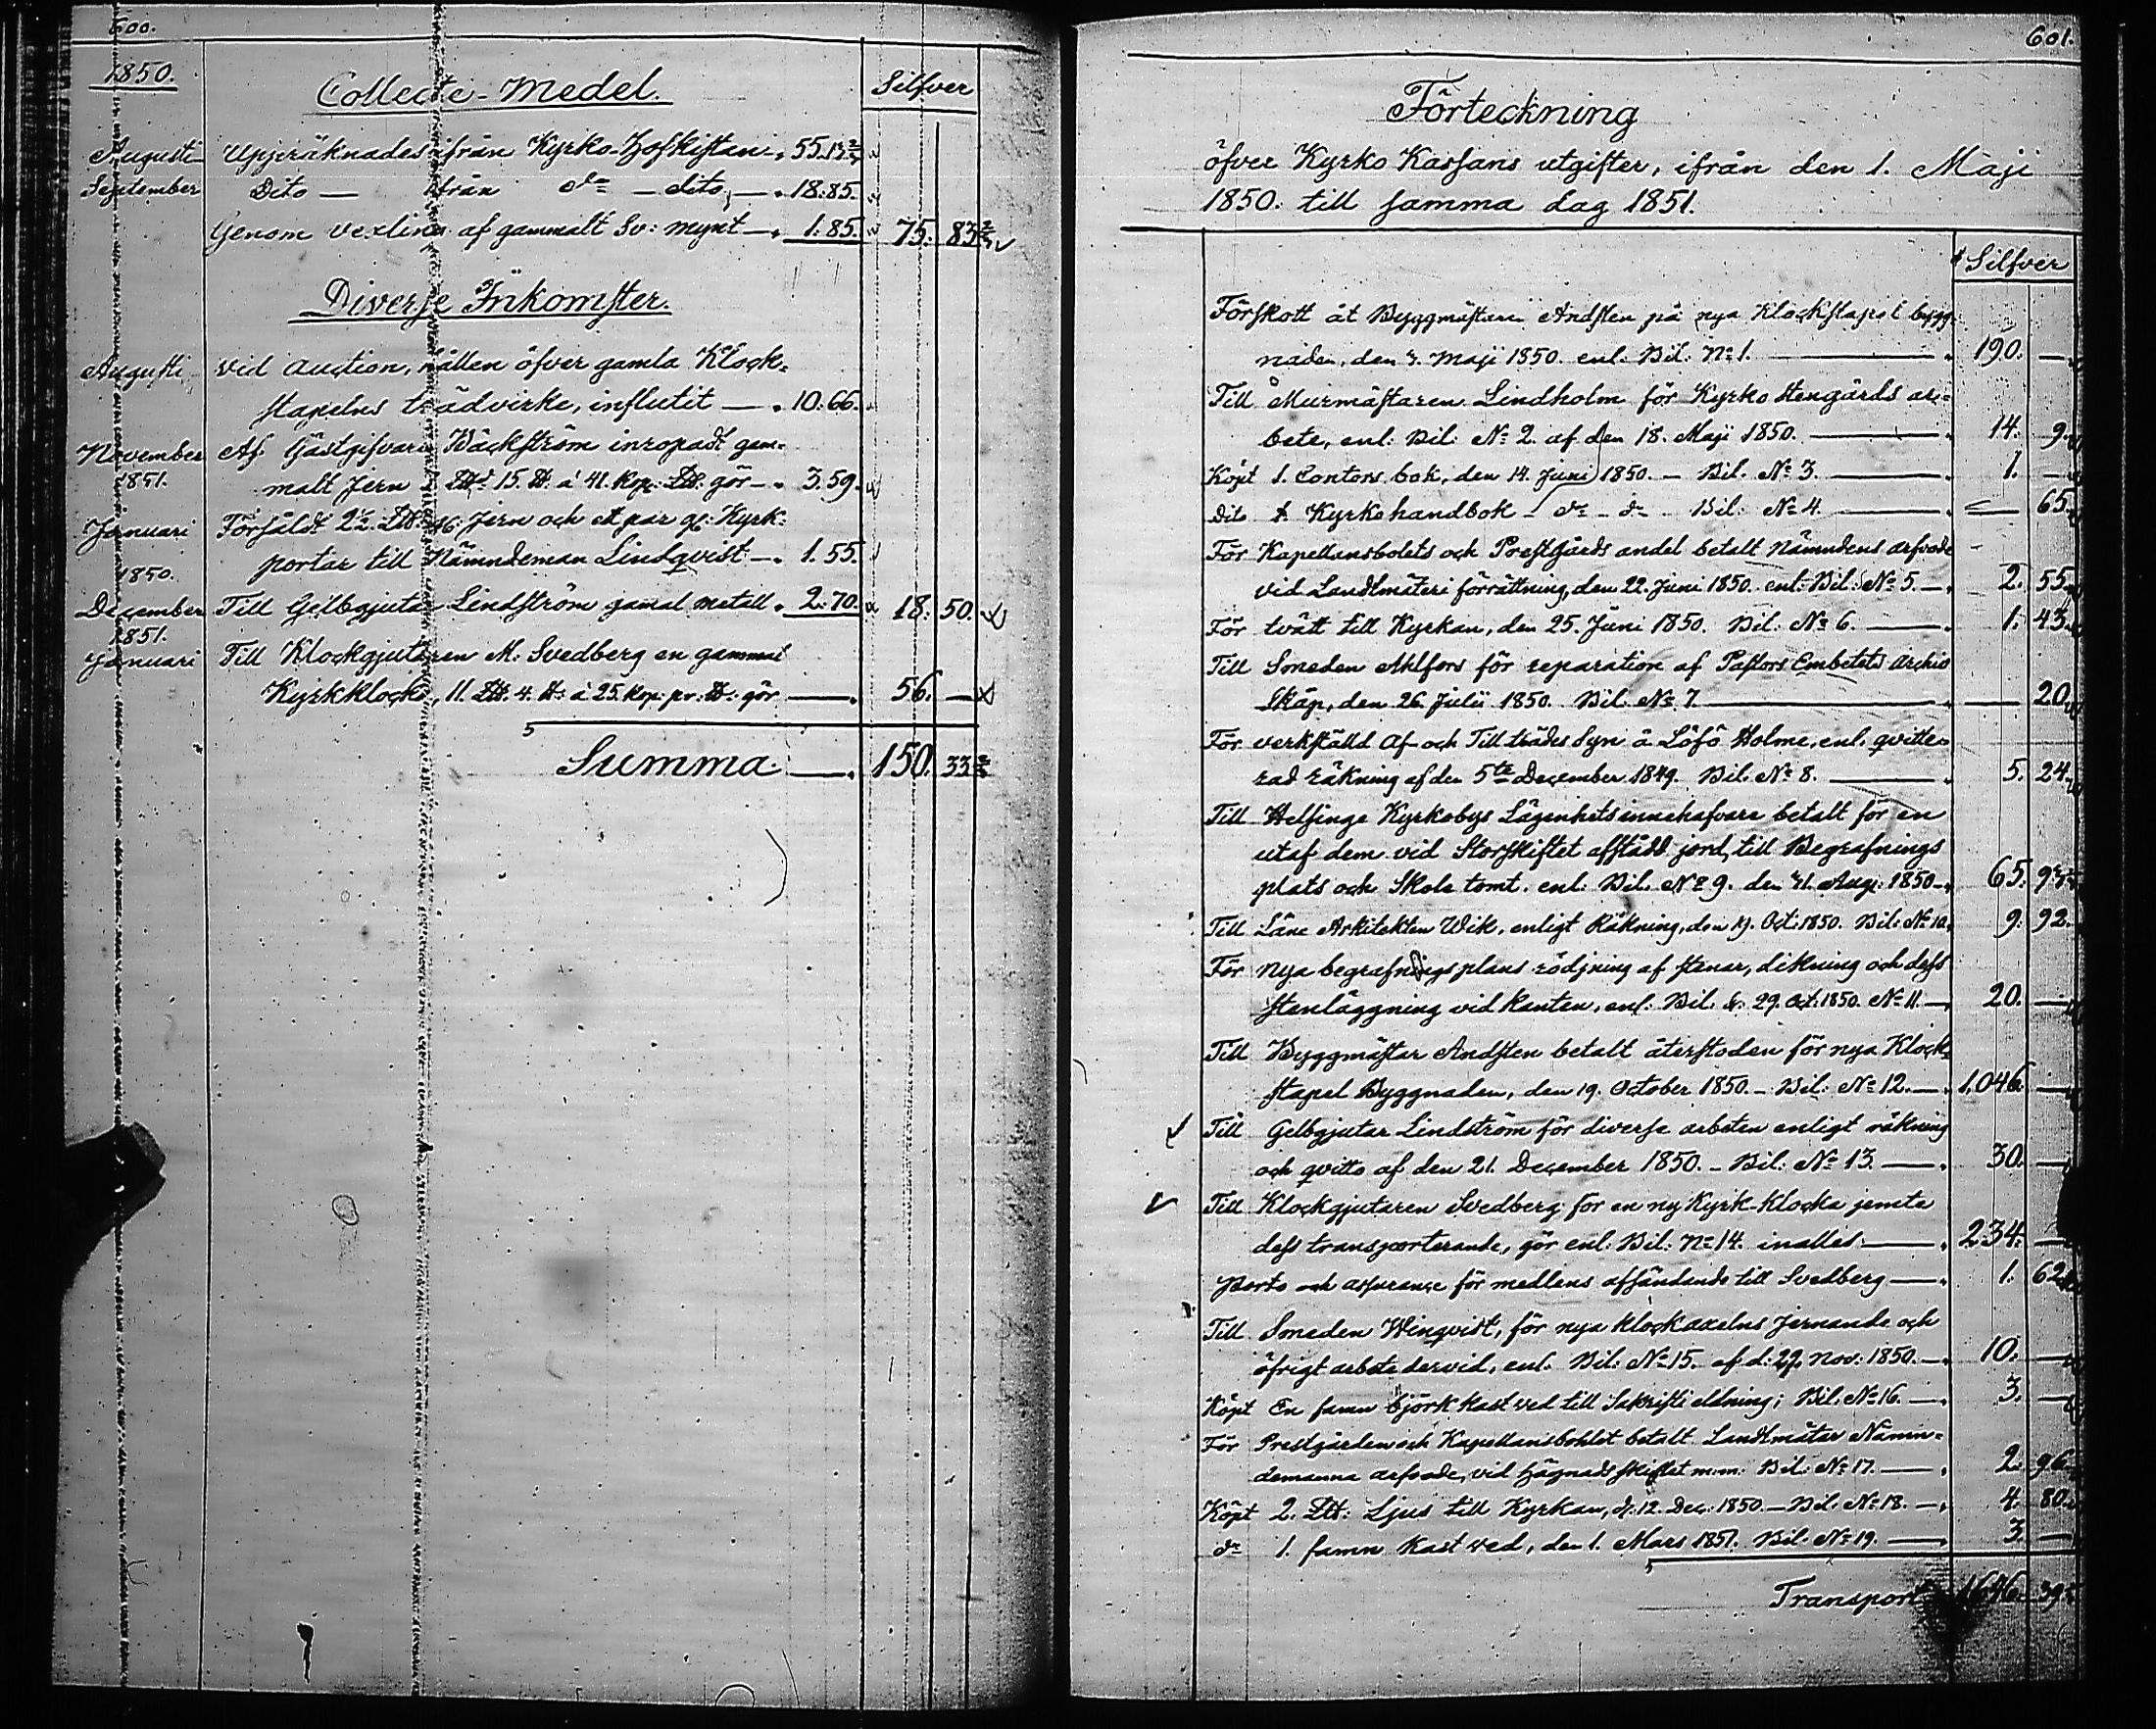 600.
1850.
Collecte-Medel.
Silfver
Augusti Uppräknades ifrån Kyrko-Hofkistan 55.13 2/7
September Dito — ifrån do — dito — 18:85.
Genom vexling af gammalt Sv: mynt — 1:85. 75. 83 2/7
Diverse Inkomster.
Augusti vid Auction, hållen öfver gamla Klock-
stapelns trädvirke, influtit — 10:66.
November Af Gästgifvaren Bäckström inropadt gam-
1851. malt Jern 15. ℔. á 41. Kop: gör — 3.59.
Januari Försåldt 2½ Jern och et par gl: Kyrk-
portar till Nämndeman Lindqvist — 1.55.
1850.
December Till Gelbgjutar Lindström gamal metall 2:70. 18. 50.
1851.
Januari Till Klockgjutaren M: Svedberg en gammal
Kyrkklocka, 11. L℔. 4. ℔ á 25. Kop: pr: ℔: gör — 56. —
Summa — 150. 33 2/7
601.
Förteckning
öfver Kyrko Kassans utgifter, ifrån den 1. Maji
1850. till samma dag 1851.
Silfver
Förskott åt Byggmästaren Andsten på nya Klockstapel bygg-
naden, den 3. Maji 1850. enl: Bil: No 1. — 190. —
Till Murmästaren Lindholm för Kyrko Stengårds ar-
bete, enl: Bil: No 2. af den 18. Maji 1850. — 14. 9.
Köpt 1. Contors bok, den 14. Juni 1850. — Bil. No 3. — 1. —
Dito 1. Kyrkohandbok — do — do — Bil: No 4. — 65.
För Kapellansbolets och Prestgårds andel betalt Nämndens arfvode
vid Landtmäteri förrättning, den 22. Juni 1850. enl: Bil: No 5. — 2. 55.
För tvätt till Kyrkan, den 25. Juni 1850. Bil: No 6. — 1. 43.
Till Smeden Ahlfors för reparation af Pastors Embetets archiv
Skåp, den 26. Julii 1850. Bil. No 7. — 20.
För verkställd Af- och Tillträdes Syn å Löfö Holme, enl. qvitte-
rad räkning af den 5te December 1849. Bil. No 8. — 5. 24.
Till Helsinge Kyrkobys Lägenhetsinnehafvare betalt för en
utaf dem vid Storskiftet afstådd jord, till Begrafnings
plats och Skole tomt. enl: Bil. No 9. den 31. Aug: 1850 — 65.
Till Läne Arkitekten Wik, enligt Räkning, den 19. Oct: 1850. Bil: No 10. 9. 92.
För nya begrafningsplans rödjning af stenar, dikning och dess
stenläggning vid kanten, enl: Bil. d: 29. Oct: 1850. No 11. — 20. —
Till Byggmästar Andsten betalt återstoden för nya Klock-
stapel Byggnaden, den 19. October 1850. — Bil: No 12. — 1,046. —
Till Gelbgjutar Lindström för diverse arbeten enligt räkning
och qvitto af den 21. December 1850. — Bil: No 13. — 30. —
Till Klockgjutaren Svedberg för en ny Kyrk-klocka jemte
dess transporterande, gör enl: Bil: No 14. inalles — 234. —
Porto och assurance för medlens afsändande till Svedberg — 1. 62
Till Smeden Winqvist, för nya klockaxelns Jernande och
öfrigt arbete dervid, enl. Bil: No 15. af d: 29. Nov: 1850. — 10. —
Köpt En famn björk kast ved till Sakristi eldning; Bil. No 16. — 3. —
För Prestgården och Kapellansbohlet betalt Landtmätar Nämn-
demanna arfvode, vid hägnads skiftet m:m: Bil: No 17. — 2. 96.
Köpt 2. L℔: Ljus till Kyrkan, d: 12. Dec: 1850. — Bil. No 18. — 4. 80.
do 1. famn Kast ved, den 1. Mars 1851. Bil. No 19. — 3. —
Transport 1646. 39